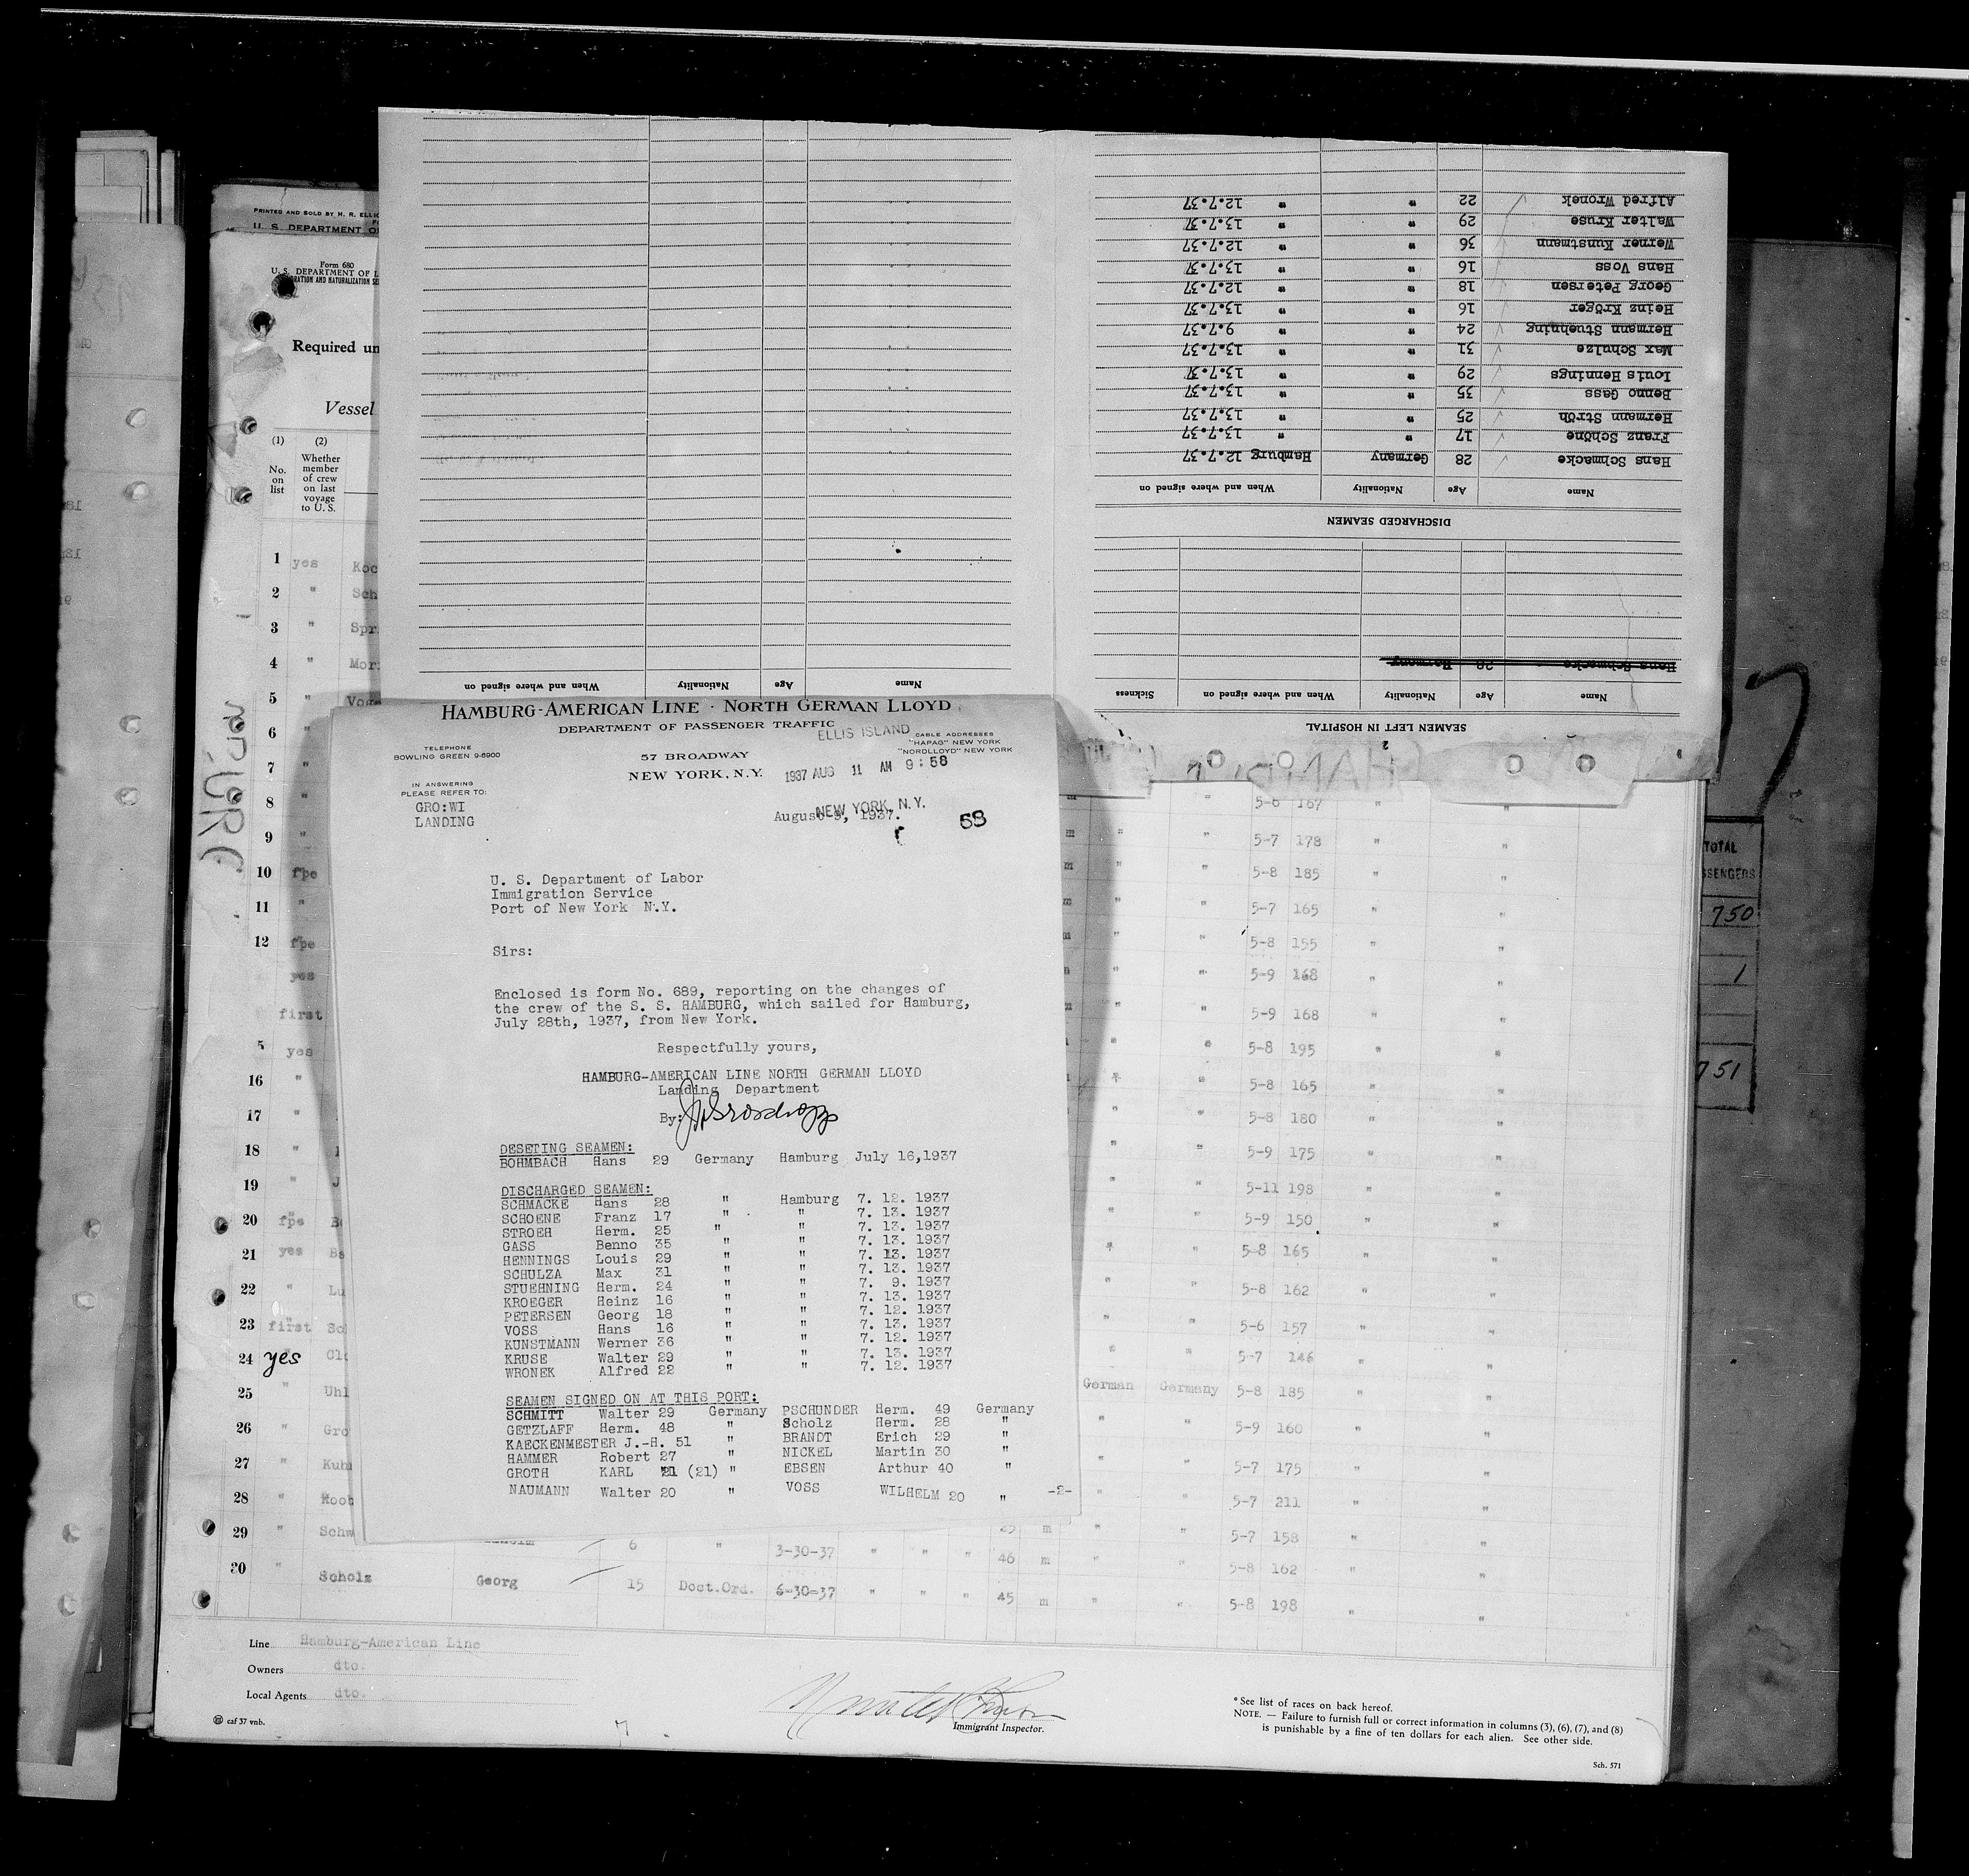 PRINTED AND SOLD BY H. R. ELLIO
U. S. DEPARTMENT O
Form 680
U. S. DEPARTMENT OF L
RATION AND NATURALIZATION SE
Required un
Vessel
(1) (2)
No. on list
Whether member of crew on last voyage to U. S.
1 yes Koc
2 " Sch
3 " Spr
4 " Mor
5 " Voge
6 "
7 "
8 "
9 "
10 fpe
11 "
12 fpe
yes
first
5 yes
16 "
17 "
18 "
19 " J
20 fpe
21 yes
22 " Lu
23 first Sc
24 yes Clo
25 " Uhl
26 " Gro
27 " Kuh
28 " Koot
29 " Schw
6 " 3-30-37 " " " 46 m
30 " Scholz Georg 15 Dect.Ord. 6-30-37 " " " 45 m
Line Hamburg-American Line
Owners dto.
Local Agents dto.
caf 37 vnb.
Immigrant Inspector.
*See list of races on back hereof.
NOTE. — Failure to furnish full or correct information in columns (3), (6), (7), and (8)
is punishable by a fine of ten dollars for each alien. See other side.
Sch. 571
5-6 167 " "
5-7 178 " "
5-8 185 " "
5-7 165 " "
5-8 155 " "
5-9 168 " "
5-9 168 " "
5-8 195 " "
5-8 165 " "
5-8 180 " "
5-9 175 " "
5-11 198 " "
5-9 150 " "
5-8 165 " "
5-8 162 " "
5-6 157 " "
5-7 146 " "
German Germany 5-8 185 " "
5-9 160 " "
5-7 175 " "
5-7 211 " "
5-7 158 " "
5-8 162 " "
5-8 198 " "
HAMBURG-AMERICAN LINE · NORTH GERMAN LLOYD
DEPARTMENT OF PASSENGER TRAFFIC
ELLIS ISLAND
TELEPHONE
BOWLING GREEN 9-6900
57 BROADWAY
NEW YORK, N.Y.
CABLE ADDRESSES
"HAPAG" NEW YORK
"NORDLLOYD" NEW YORK
1937 AUG 11 AM 9:58
IN ANSWERING
PLEASE REFER TO:
GRO:WI
LANDING
NEW YORK, N.Y.
August 9, 1937.
58
U. S. Department of Labor
Immigration Service
Port of New York N.Y.
Sirs:
Enclosed is form No. 689, reporting on the changes of
the crew of the S. S. HAMBURG, which sailed for Hamburg,
July 28th, 1937, from New York.
Respectfully yours,
HAMBURG-AMERICAN LINE NORTH GERMAN LLOYD
Landing Department
By:
DESETING SEAMEN:
BOHMBACH Hans 29 Germany Hamburg July 16,1937
DISCHARGED SEAMEN:
SCHMACKE Hans 28 " Hamburg 7. 12. 1937
SCHOENE Franz 17 " " 7. 13. 1937
STROEH Herm. 25 " " 7. 13. 1937
GASS Benno 35 " " 7. 13. 1937
HENNINGS Louis 29 " " 7. 13. 1937
SCHULZA Max 31 " " 7. 13. 1937
STUEHNING Herm. 24 " " 7. 9. 1937
KROEGER Heinz 16 " " 7. 13. 1937
PETERSEN Georg 18 " " 7. 12. 1937
VOSS Hans 16 " " 7. 13. 1937
KUNSTMANN Werner 36 " " 7. 12. 1937
KRUSE Walter 29 " " 7. 13. 1937
WRONEK Alfred 22 " " 7. 12. 1937
SEAMEN SIGNED ON AT THIS PORT:
SCHMITT Walter 29 Germany PSCHUNDER Herm. 49 Germany
GETZLAFF Herm. 48 " Scholz Herm. 28 "
KAECKENMESTER J.-H. 51 " BRANDT Erich 29 "
HAMMER Robert 27 NICKEL Martin 30 "
GROTH KARL 21 (21) " EBSEN Arthur 40 "
NAUMANN Walter 20 " VOSS WILHELM 20 "
-2-
2
SEAMEN LEFT IN HOSPITAL
Name Age Nationality When and where signed on Sickness
Hans Schmacke 28 Germany
DISCHARGED SEAMEN
Name Age Nationality When and where signed on
Hans Schmacke 28 Germany Hamburg 12.7.37
Franz Schöne 17 " " 13.7.37
Hermann Ströh 25 " " 13.7.37
Benno Gass 35 " " 13.7.37
Louis Hennings 29 " " 13.7.37
Max Schulze 31 " " 13.7.37
Hermann Stuehning 24 " " 9.7.37
Heinz Kröger 16 " " 13.7.37
Georg Petersen 18 " " 12.7.37
Hans Voss 16 " " 13.7.37
Werner Kunstmann 36 " " 12.7.37
Walter Kruse 29 " " 13.7.37
Alfred Wronek 22 " " 12.7.37
Name Age Nationality When and where signed on
TOTAL
SSENGERS
750
1
751